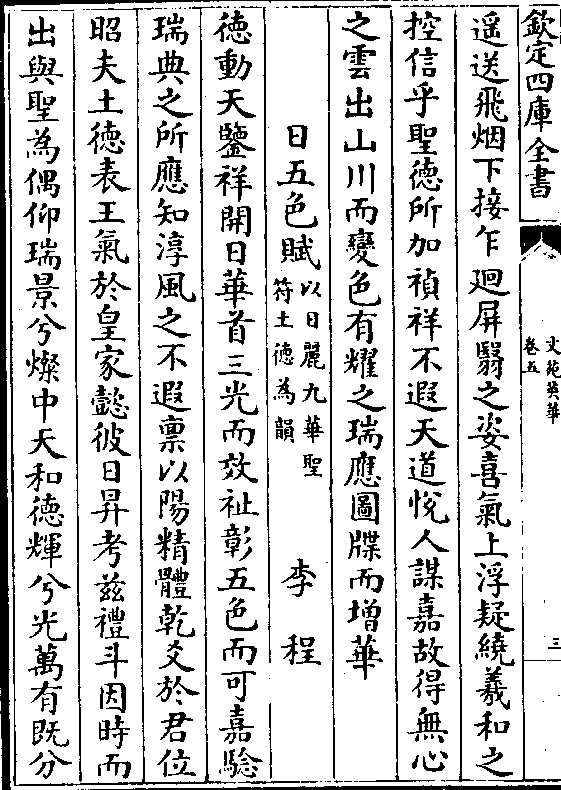 欽定四庫全書
文苑英華
卷五
三
遥送飛烟下接乍廻屏翳之姿喜氣上浮疑繞羲和之
控信乎聖德所加禎祥不遐天道恱人謀嘉故得無心
之雲出山川而變色有耀之瑞應圖牒而增華
日五色賦以日麗九華聖符土德為韻 李程
德動天鑒祥開日華首三光而效祉彰五色而可嘉驗
瑞典之所應知淳風之不遐禀以陽精體乾爻於君位
昭夫土德表王氣於皇家懿彼日昇考兹禮斗因時而
出與聖為偶仰瑞景兮燦中天和德輝兮光萬有既分